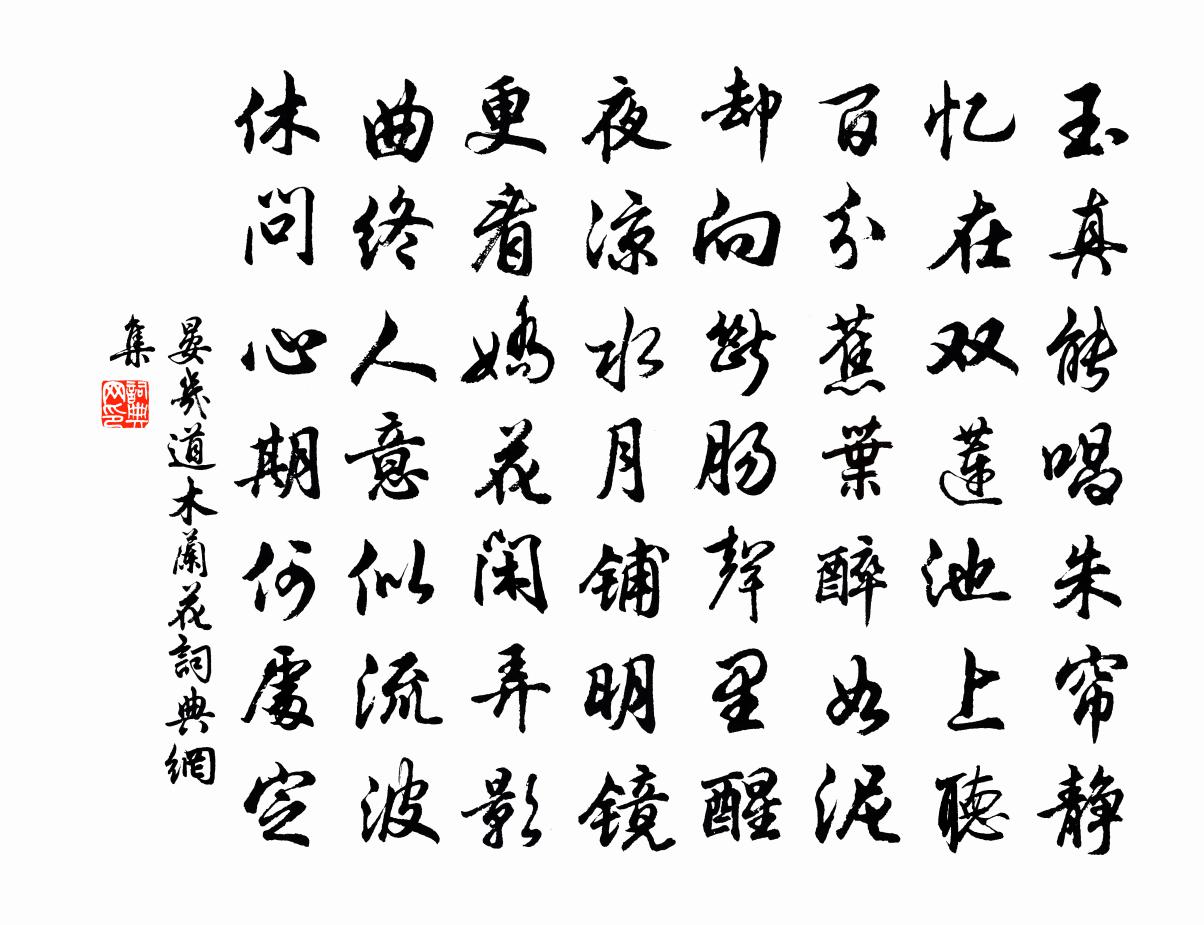 玉真能唱朱帘静
忆在双莲池上聽
百分蕉葉醉如泥
却向断肠聲里醒
夜凉水月铺明镜
更看嬌花闲弄影
曲终人意似流波
休问心期何處定
晏幾道木蘭花詞典網
集
詞典网印